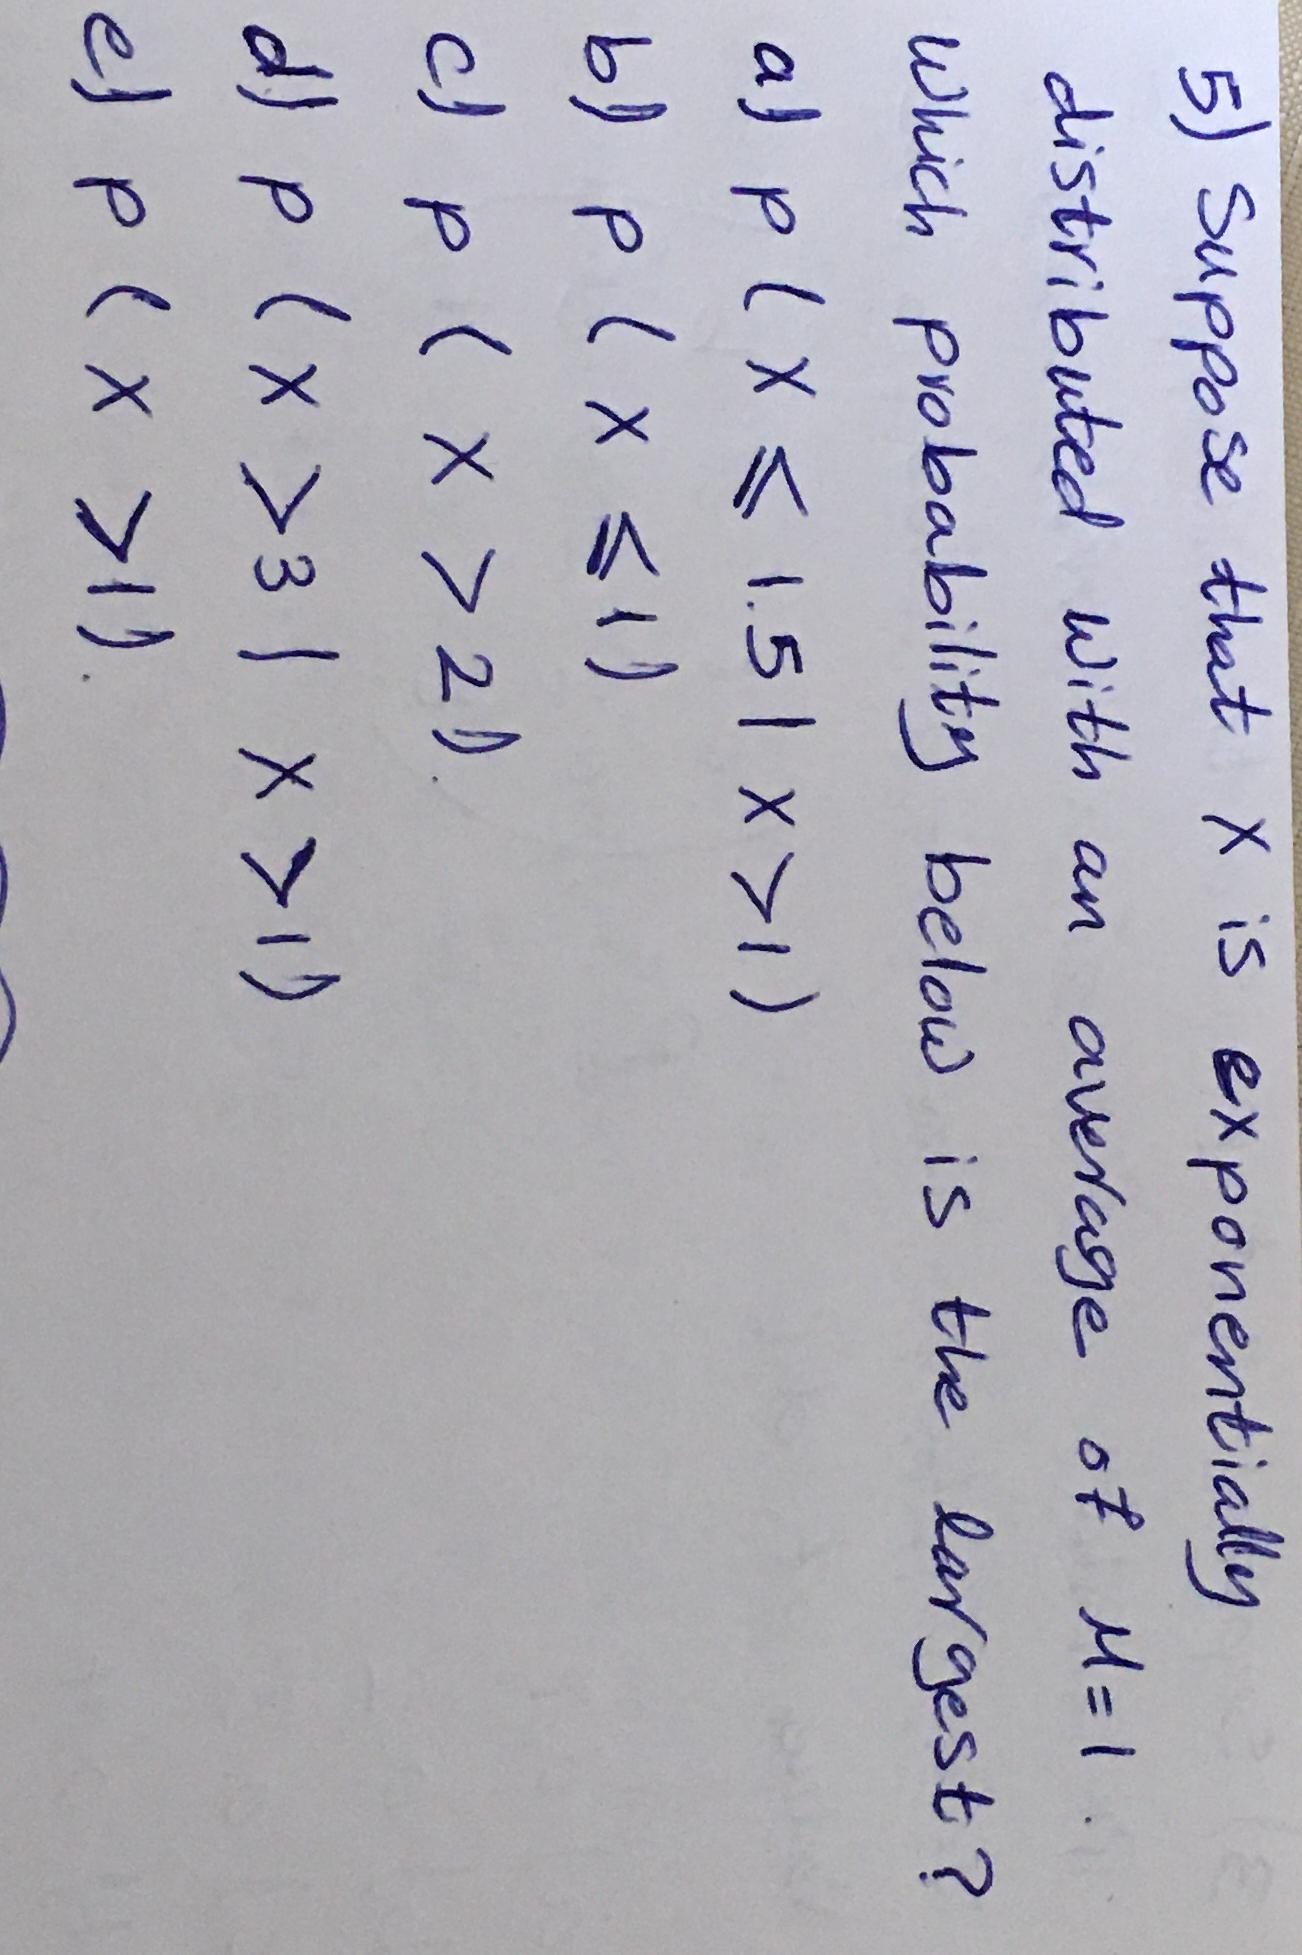 5) Suppose that X is exponentially
distributed with an average of M=1.
Which probability below is the largest?
a) P(X ≤ 1.5 | X > 1)
b) P(X ≤ 1)
c) P(X > 2).
d) P(X > 3 | X > 1)
e) P(X > 1).